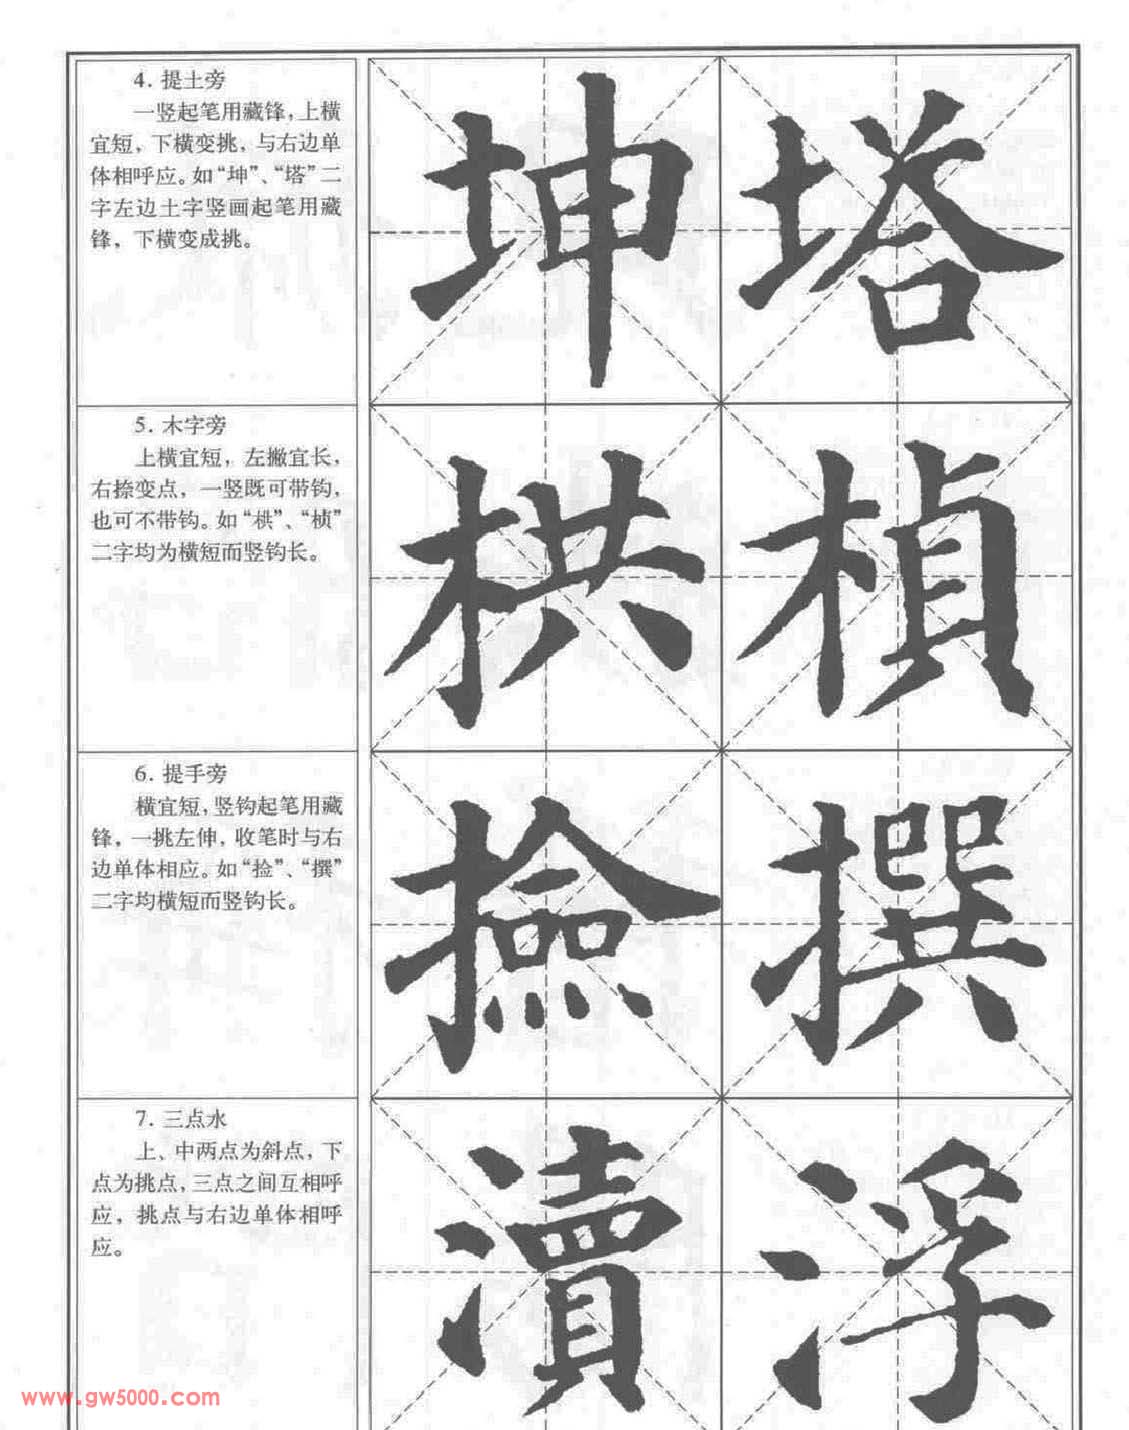 4. 提土旁
一竖起笔用藏锋，上横
宜短，下横变挑，与右边单
体相呼应。如“坤”、“塔”二
字左边土字竖画起笔用藏
锋，下横变成挑。
坤 塔
5. 木字旁
上横宜短，左撇宜长，
右捺变点，一竖既可带钩，
也可不带钩。如“栱”、“桢”
二字均为横短而竖钩长。
栱 楨
6. 提手旁
横宜短，竖钩起笔用藏
锋，一挑左伸，收笔时与右
边单体相应。如“捡”、“撰”
二字均横短而竖钩长。
撿 撰
7. 三点水
上、中两点为斜点，下
点为挑点，三点之间互相呼
应，挑点与右边单体相呼
应。
瀆 浮
www.gw5000.com